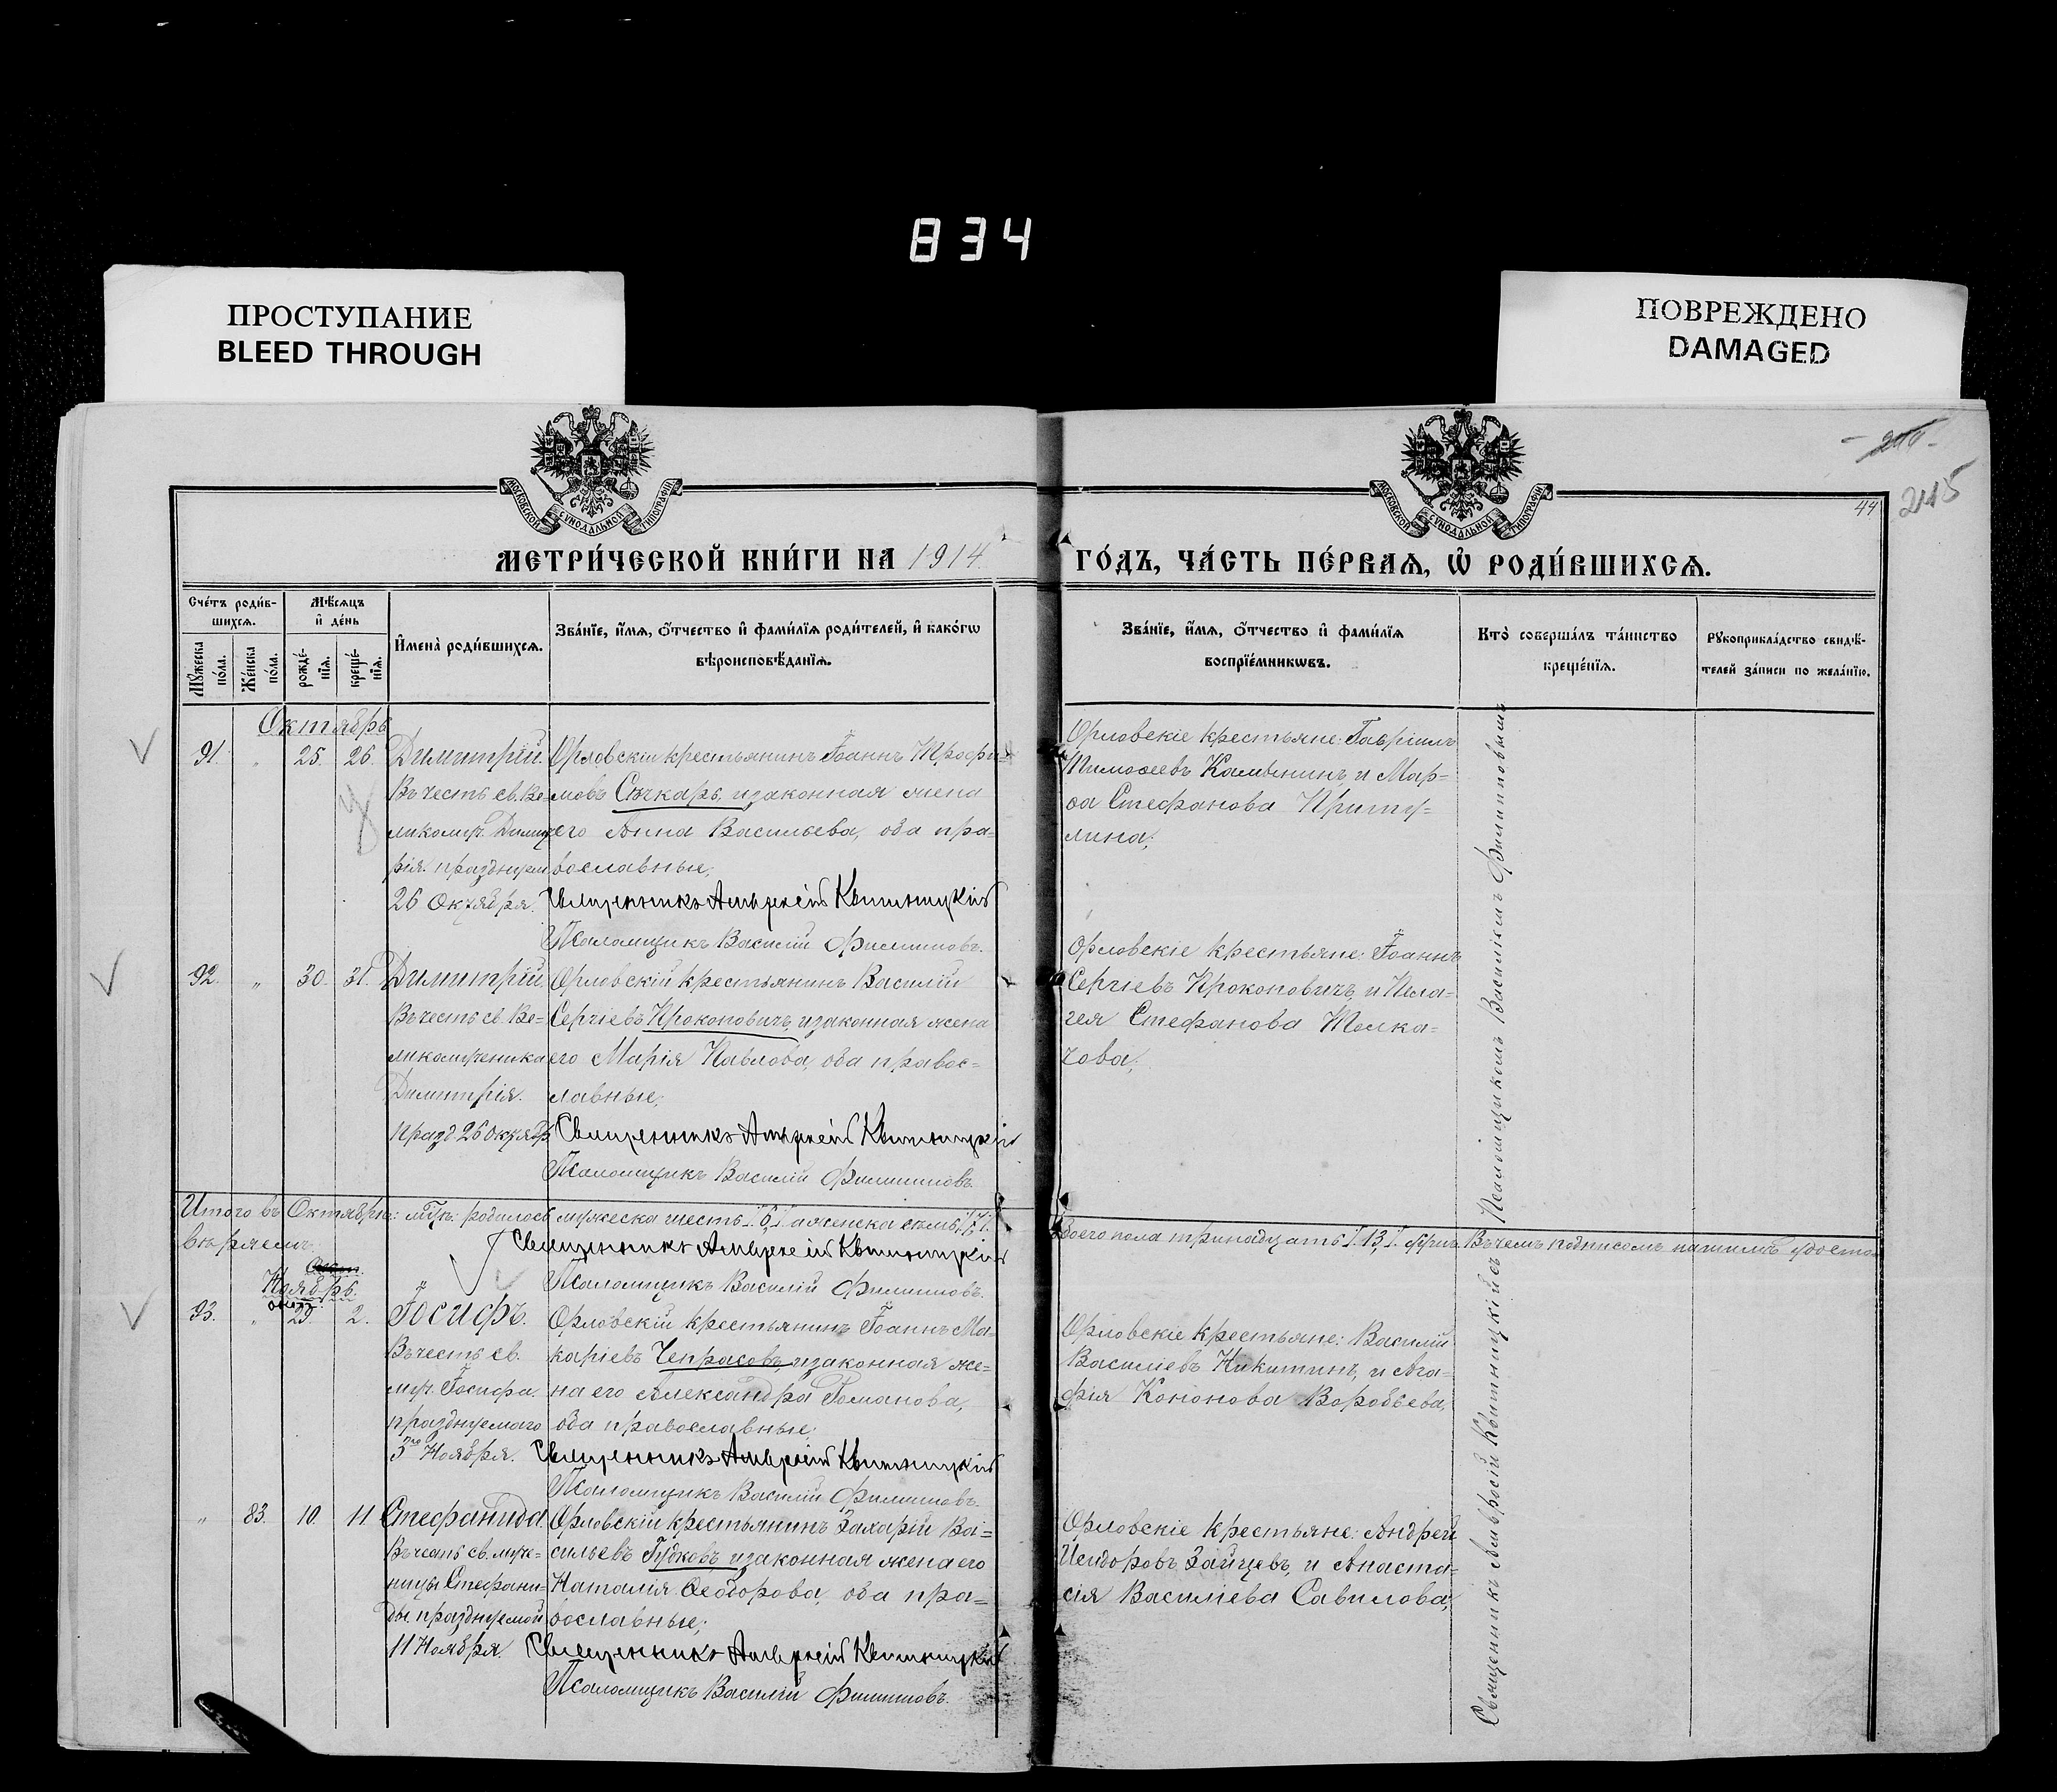 834
ПРОСТУПАНИЕ
BLEED THROUGH
ПОВРЕЖДЕНО
DAMAGED
МОСКОВСКОЙ СѴНОДАЛЬНОЙ ТИПОГРАФІИ
МОСКОВСКОЙ СѴНОДАЛЬНОЙ ТИПОГРАФІИ
44
245
МЕТРИ́ЧЕСКОЙ КНИ́ГИ НА 1914
ГО́ДЪ, ЧА́СТЬ ПЕ́РВАѦ, Ѡ҆ РОДИ́ВШИХСѦ.
Сче́тъ роди́в-
шихсѧ.
Мѣ́сѧцъ
и҆ де́нь
Мꙋ́жеска
по́ла.
Же́нска
по́ла.
рожде́-
нїѧ.
креще́-
нїѧ.
И҆мена̀ роди́вшихсѧ.
Зва́нїе, и҆́мѧ, ѻ҆́тчество и҆ фами́лїѧ роди́телей, и҆ како́гѡ
вѣроисповѣ́данїѧ.
Зва́нїе, и҆́мѧ, ѻ҆́тчество и҆ фами́лїѧ
воспрїе́мникѡвъ.
Кто̀ соверша́лъ та́инство
креще́нїѧ.
Рꙋкоприкла́дство свидѣ́-
телей за́писи по жела́нїю.
Октябрь
91. " 25. 26. Димитрій.
Въ честь св. Ве-
ликомуч. Димит
рія. празднуем
26 Октября.
Орловскій крестьянинъ Іоаннъ Трофи-
мовъ Сѣчкарь, и законная жена
его Анна Васильева, оба пра-
вославные;
Священникъ Амвросій Квитницкій
Псаломщикъ Василій Филипповъ.
Орловскіе крестьяне: Гавріилъ
Тимоѳеевъ Калѣнинъ, и Мар-
ѳа Стефанова Приту-
лина;
92. " 30. 31. Димитрій.
Въ честь св. Ве-
ликомученика
Димитрія.
празд 26 Октяб
Орловскій крестьянинъ Василій
Сергіевъ Прокоповичъ, и законная жена
его Марія Павлова, оба правос-
лавные;
Священникъ Амвросій Квитницкій
Псаломщикъ Василій Филипповъ.
Орловскіе крестьяне: Іоаннъ
Сергіевъ Прокоповичъ, и Пела-
гея Стефанова Толка-
чова;
Итого въ Октябрѣ: мцѣ: родилось мужеска шесть /.6./ а женска семь /.7./
Обоего пола тринадцать /.13./ Въ чемъ подписомъ нашимъ удосто-
вѣряемъ:
Священникъ Амвросій Квитницкій
Псаломщикъ Василій Филипповъ.
Ноябрь.
93. " 29. 2. Іосифъ.
Въ честь св.
муч. Іосифа.
празднуемаго
3го Ноября.
Орловскій крестьянинъ Іоаннъ Ма-
каріевъ Чепрасовъ, и законная же-
на его Александра Романова,
оба православные;
Священникъ Амвросій Квитницкій
Псаломщикъ Василій Филипповъ.
Орловскіе крестьяне: Василій
Василіевъ Никитинъ, и Ага-
фія Кононова Воробьева;
" 83. 10. 11 Стефанида.
Въ честь св. муче-
ницы Стефани-
ды. празднуемой
11 Ноября.
Орловскій крестьянинъ Захарій Ва-
сильевъ Гудковъ, и законная жена его
Наталія Ѳеодорова, оба пра-
вославные;
Священникъ Амвросій Квитницкій
Псаломщикъ Василій Филипповъ.
Орловскіе крестьяне: Андрей
Исидоровъ Зайцевъ, и Анаста-
сія Василіева Савилова;
Священникъ Амвросій Квитницкій съ Псаломщикомъ Василіемъ Филипповымъ